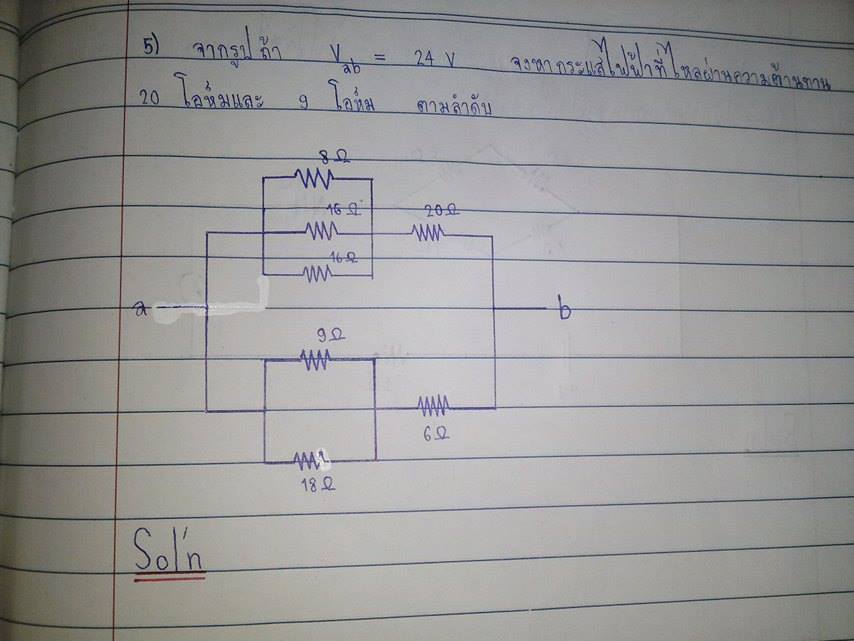 5) จากรูป ถ้า Vab = 24 V จงหากระแสไฟฟ้าที่ไหลผ่านความต้านทาน
20 โอห์มและ 9 โอห์ม ตามลำดับ
8Ω
16Ω
20Ω
16Ω
a
b
9Ω
6Ω
18Ω
Sol'n